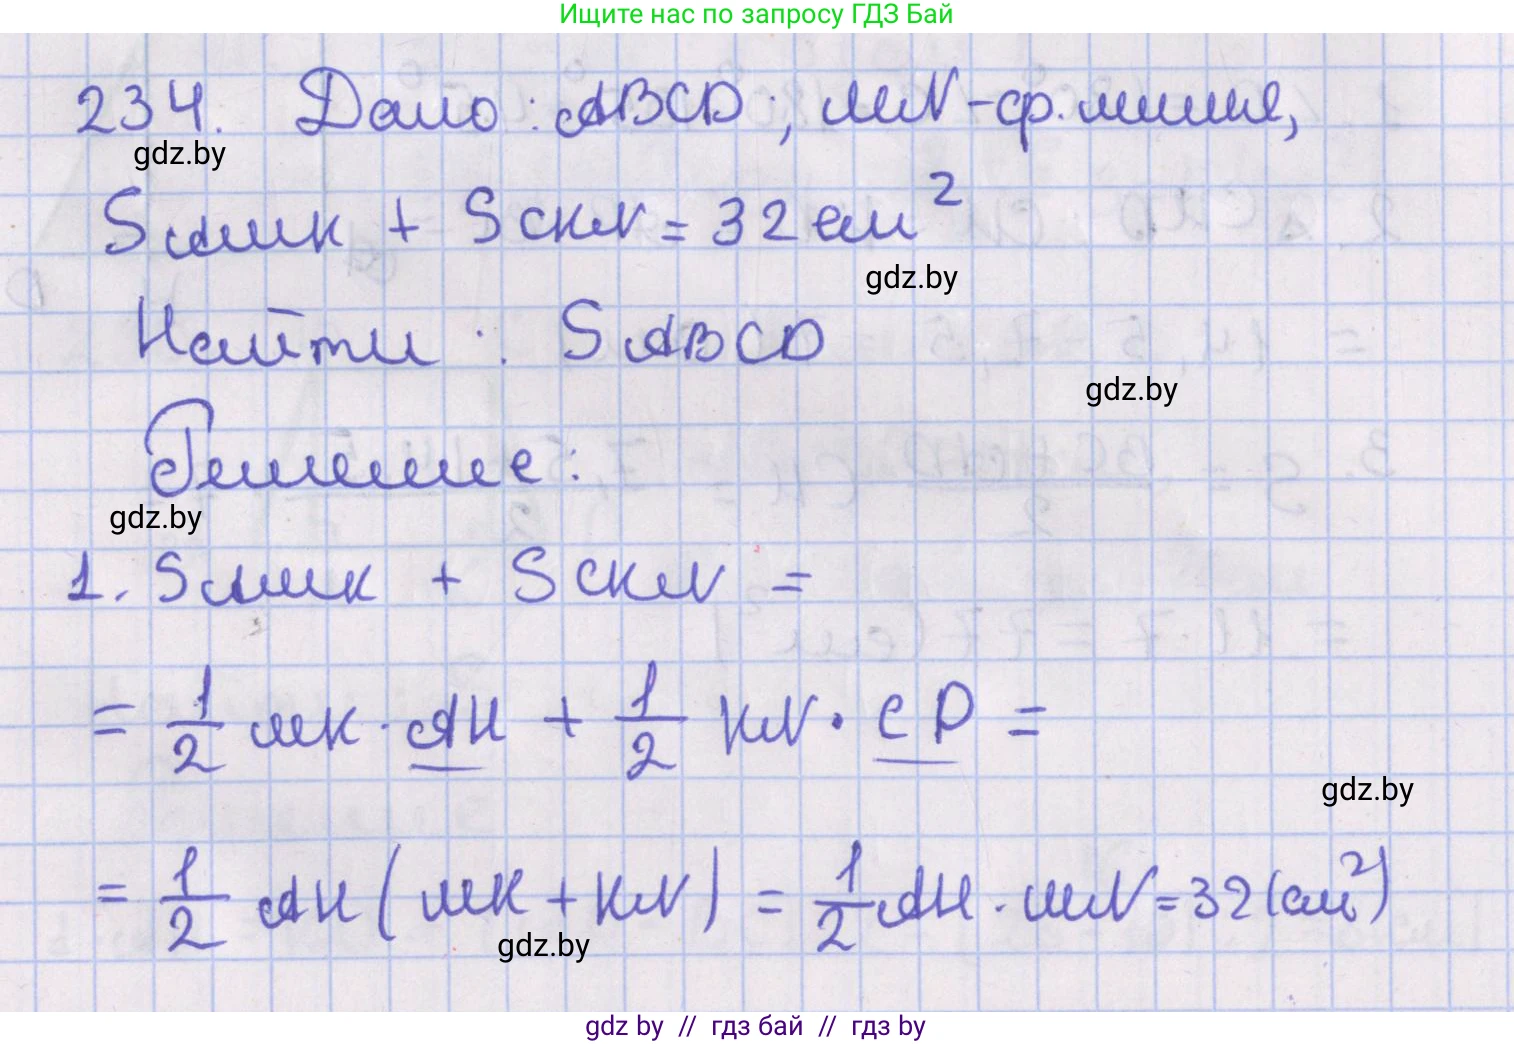 Ищите нас по запросу ГДЗ Бай
234. Дано: ABCD; MN - ср. линия,
gdz.by
S AMK + S CKN = 32 см²
gdz.by
Найти: S ABCD
gdz.by
Решение:
gdz.by
1. S AMK + S CKN =
= 1/2 MK · AH + 1/2 KN · CP =
gdz.by
= 1/2 AH (MK + KN) = 1/2 AH · MN = 32 (см²)
gdz.by
gdz by // гдз бай // гдз by